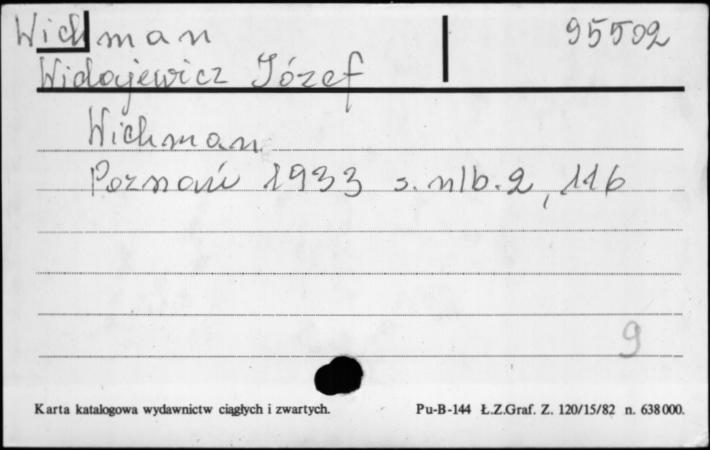 Wichman 95502
Widajewicz Józef
Wichman
Poznań 1933 s. nlb. 2, 116
9
Karta katalogowa wydawnictw ciągłych i zwartych. Pu-B-144 Ł.Z.Graf. Z. 120/15/82 n. 638000.